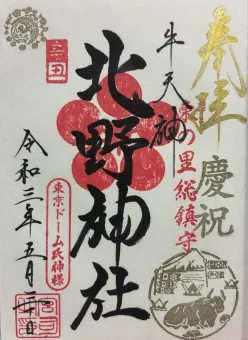 奉拝
慶祝
牛天神
の里総鎮守
北野神社
東京ドーム氏神様
令和三年五月二日